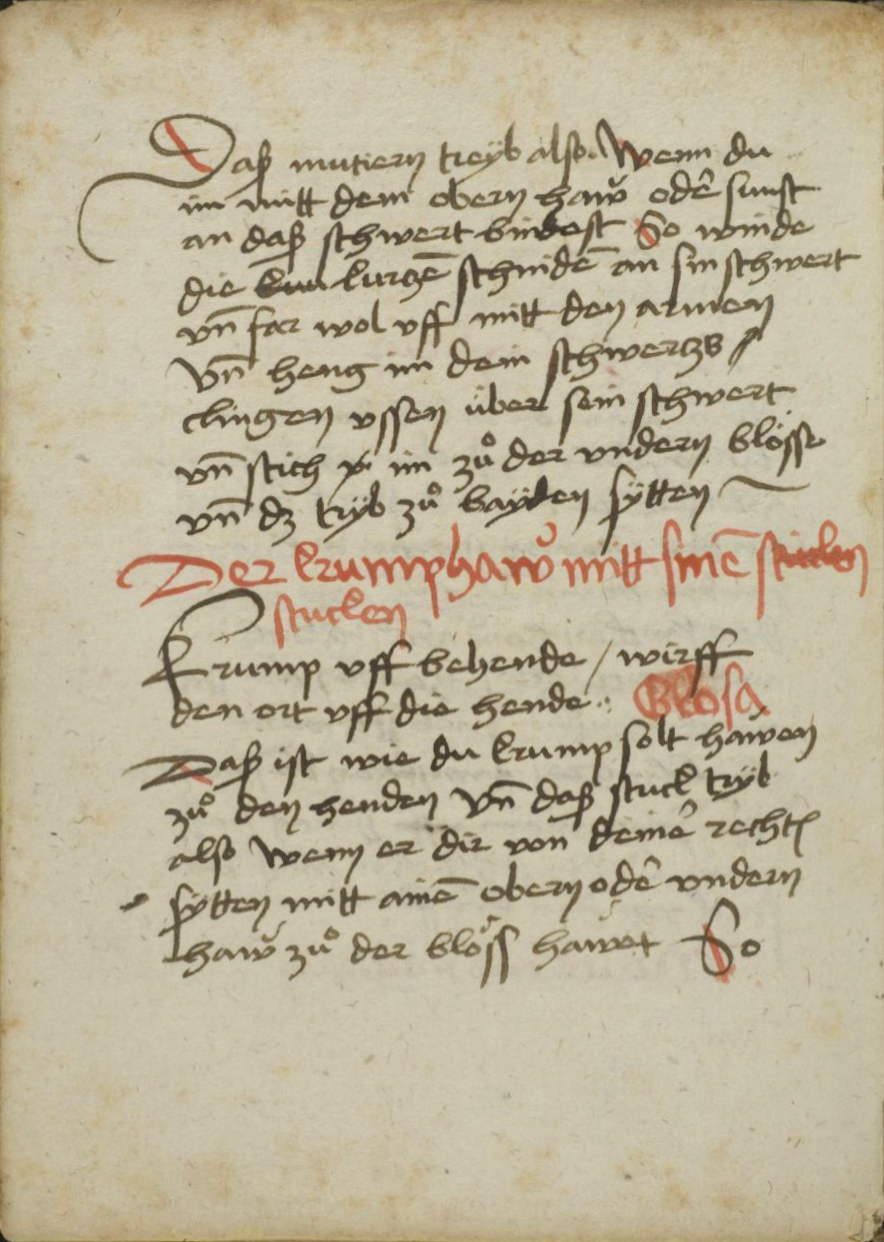 Daß mutiern treyb also· Wenn du
im mitt dem obern haw̆ odē sunst
an daß schwert bindest So winde
die kurczē schnidē an sin schwert
vn̄ far wol vff mitt den armen
Vn̄ heng im dein schwertzs
clingen vssen über sein schwert
vn̄ stich im zuͦ der vndern blösse
vn̄ dz tryb zuͦ bayden sytten
Der krumphaw̆ mitt sinē stucken
stucken
Krump vff behende / wirff
den ort vff die hende · Glosa
Daß ist wie du krump solt hawen
zuͦ den henden Vn̄ daß stuck tryb
also Wenn er dir von deinē rechtē
sytten mitt ainē obern odē vndern
haw̆ zuͦ der blöss hawet So